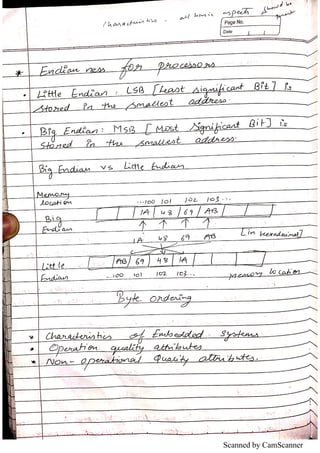 Characteristics, all domain aspects should be
Page No.
Date
* Endianness for processors
. Little Endian : LSB [Least significant Bit] is
stored in the smallest address.
. Big Endian : MSB [Most Significant Bit] is
stored in the smallest address.
Big Endian vs Little Endian.
Memory
location ...100 101 102 103...
Big 1A 48 69 AB
Endian 1A 48 69 AB [in hexadecimal]
Little AB 69 48 1A
Endian ..100 101 102 103... Memory location
Byte ordering
* Characteristics of Embedded Systems
* Operation quality attributes
* Non-operational Quality attributes.
Scanned by CamScanner